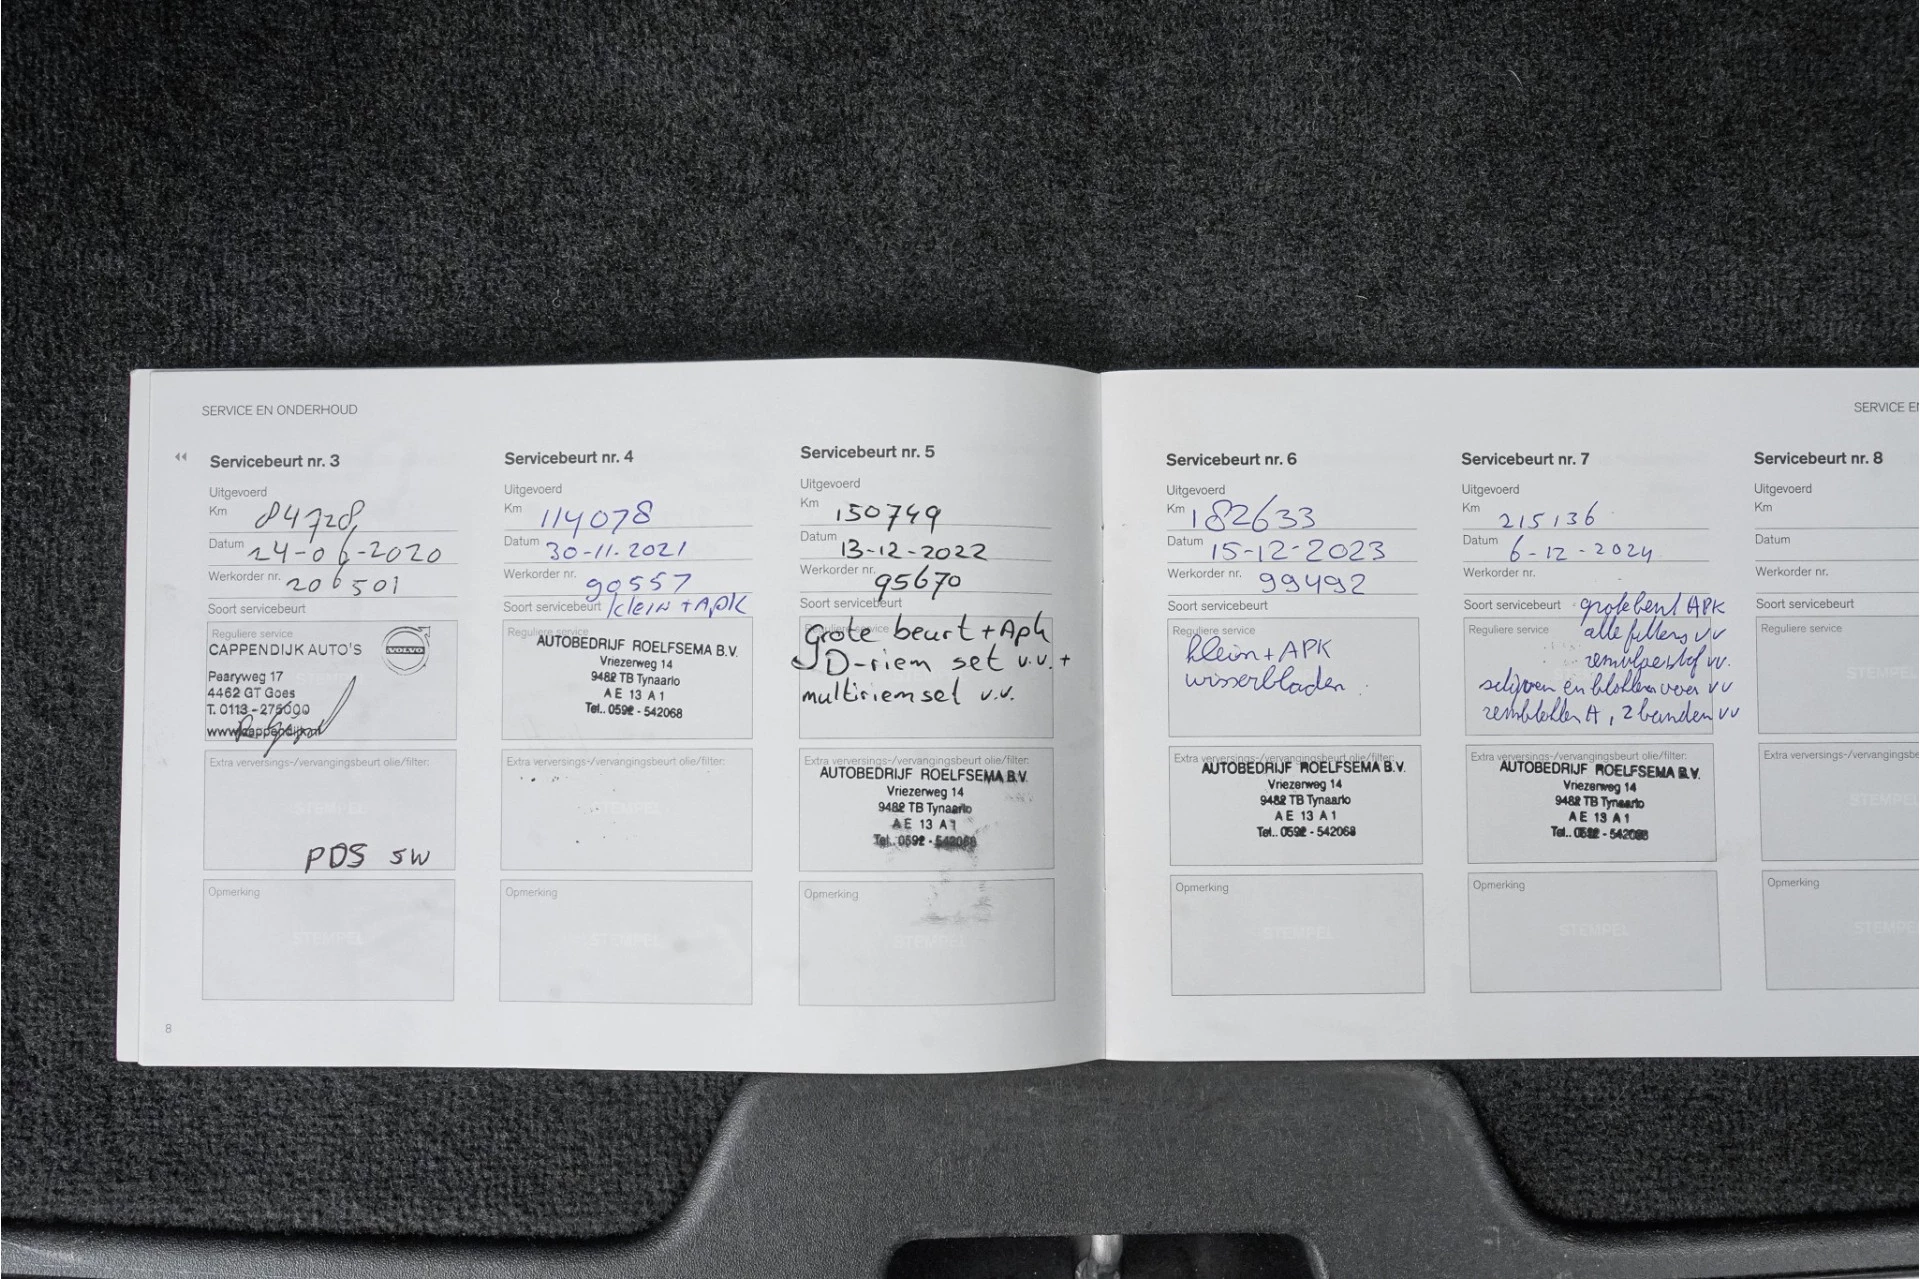 SERVICE EN ONDERHOUD
Servicebeurt nr. 3
Uitgevoerd
Km 84728
Datum 24-06-2020
Werkorder nr. 206501
Soort servicebeurt
Reguliere service
CAPPENDIJK AUTO'S
VOLVO
Pearyweg 17
4462 GT Goes
T. 0113 - 275000
www.cappendijk.nl
Extra verversings-/vervangingsbeurt olie/filter:
STEMPEL
PDS SW
Opmerking
STEMPEL
8
Servicebeurt nr. 4
Uitgevoerd
Km 114078
Datum 30-11-2021
Werkorder nr. 90557
Soort servicebeurt klein + APK
Reguliere service
AUTOBEDRIJF ROELFSEMA B.V.
Vriezerweg 14
9482 TB Tynaarlo
AE 13 A1
Tel.. 0592 - 542068
Extra verversings-/vervangingsbeurt olie/filter:
STEMPEL
Opmerking
STEMPEL
Servicebeurt nr. 5
Uitgevoerd
Km 150749
Datum 13-12-2022
Werkorder nr. 95670
Soort servicebeurt
Reguliere service
Grote beurt + Apk
D-riem set v.v. +
multiriemset v.v.
Extra verversings-/vervangingsbeurt olie/filter:
AUTOBEDRIJF ROELFSEMA B.V.
Vriezerweg 14
9482 TB Tynaarlo
AE 13 A1
Tel.. 0592 - 542068
Opmerking
STEMPEL
Servicebeurt nr. 6
Uitgevoerd
Km 182633
Datum 15-12-2023
Werkorder nr. 99492
Soort servicebeurt
Reguliere service
klein + APK
wisserbladen
Extra verversings-/vervangingsbeurt olie/filter:
AUTOBEDRIJF ROELFSEMA B.V.
Vriezerweg 14
9482 TB Tynaarlo
AE 13 A1
Tel.. 0592 - 542068
Opmerking
STEMPEL
SERVICE EN
Servicebeurt nr. 7
Uitgevoerd
Km 215136
Datum 6-12-2024
Werkorder nr.
Soort servicebeurt grote beurt APK
Reguliere service alle filters vv
remvloeistof vv.
schijven en blokken voor vv
remblokken A, 2 banden vv
Extra verversings-/vervangingsbeurt olie/filter:
AUTOBEDRIJF ROELFSEMA B.V.
Vriezerweg 14
9482 TB Tynaarlo
AE 13 A1
Tel.. 0592 - 542068
Opmerking
STEMPEL
Servicebeurt nr. 8
Uitgevoerd
Km
Datum
Werkorder nr.
Soort servicebeurt
Reguliere service
STEMPEL
Extra verversings-/vervangings
STEMPE
Opmerking
STEMPE